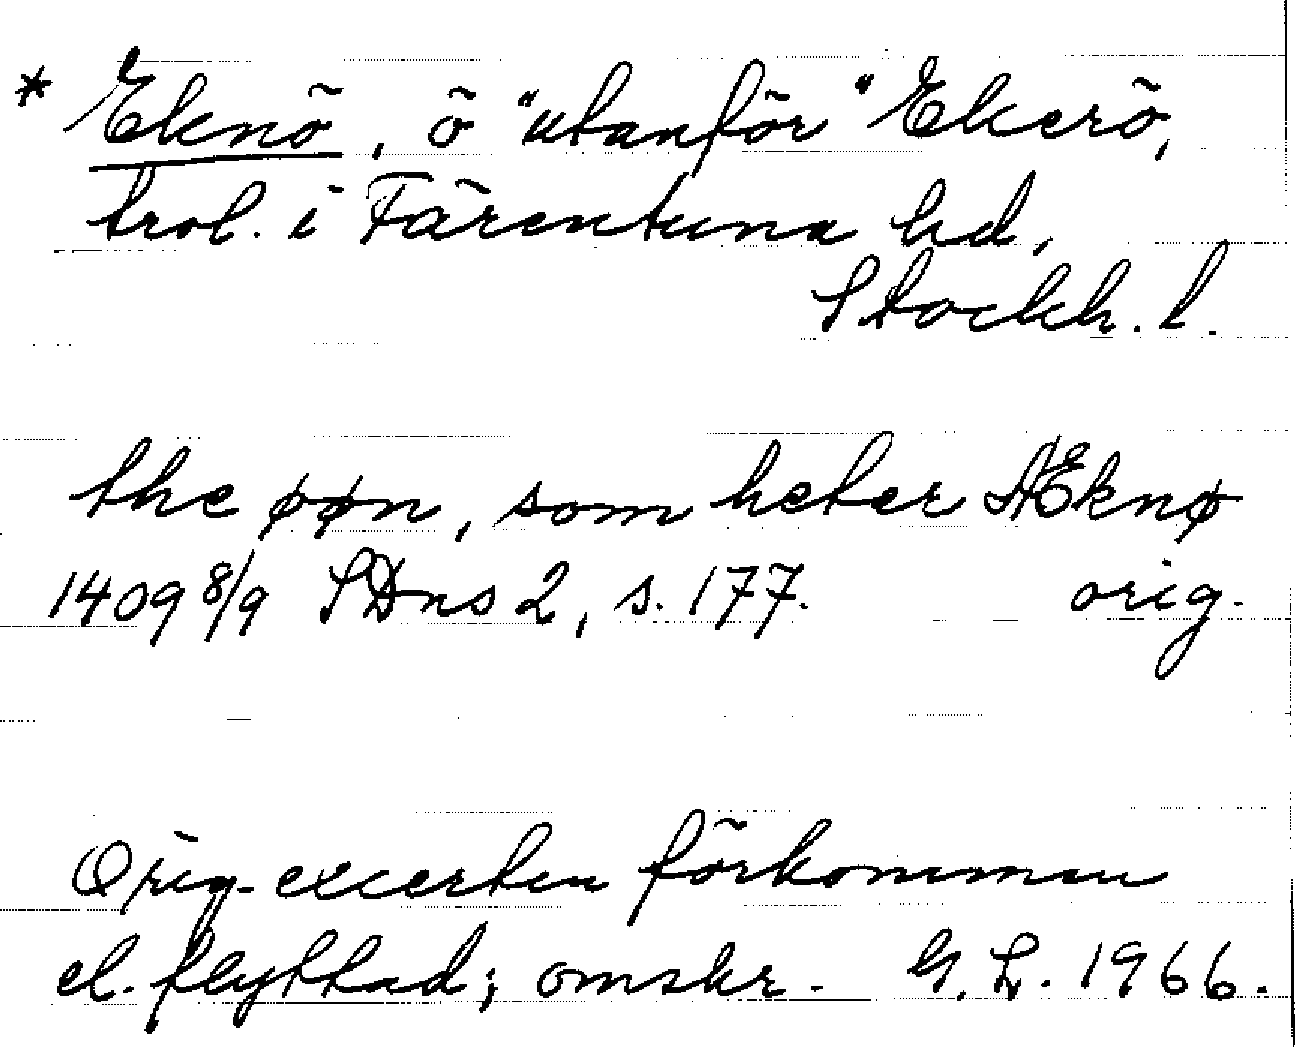 * Eknö, ö "utanför" Ekerö,
trol. i Färentuna hd,
Stockh. l.
the øøn, som heter Æknø
1409 8/9 SDns 2, s. 177. orig.
Orig.-excerten förkommen
el. flyttad; omskr. G. L. 1966.